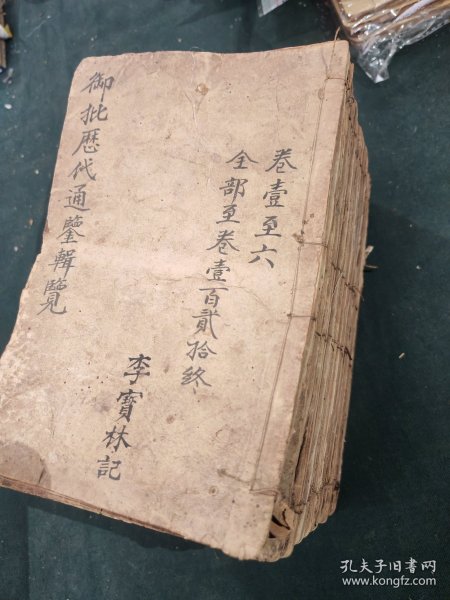 卷壹至六
全部至卷壹百貳拾終
御批歷代通鑒輯覽
李寶林記
孔夫子旧书网
www.kongfz.com